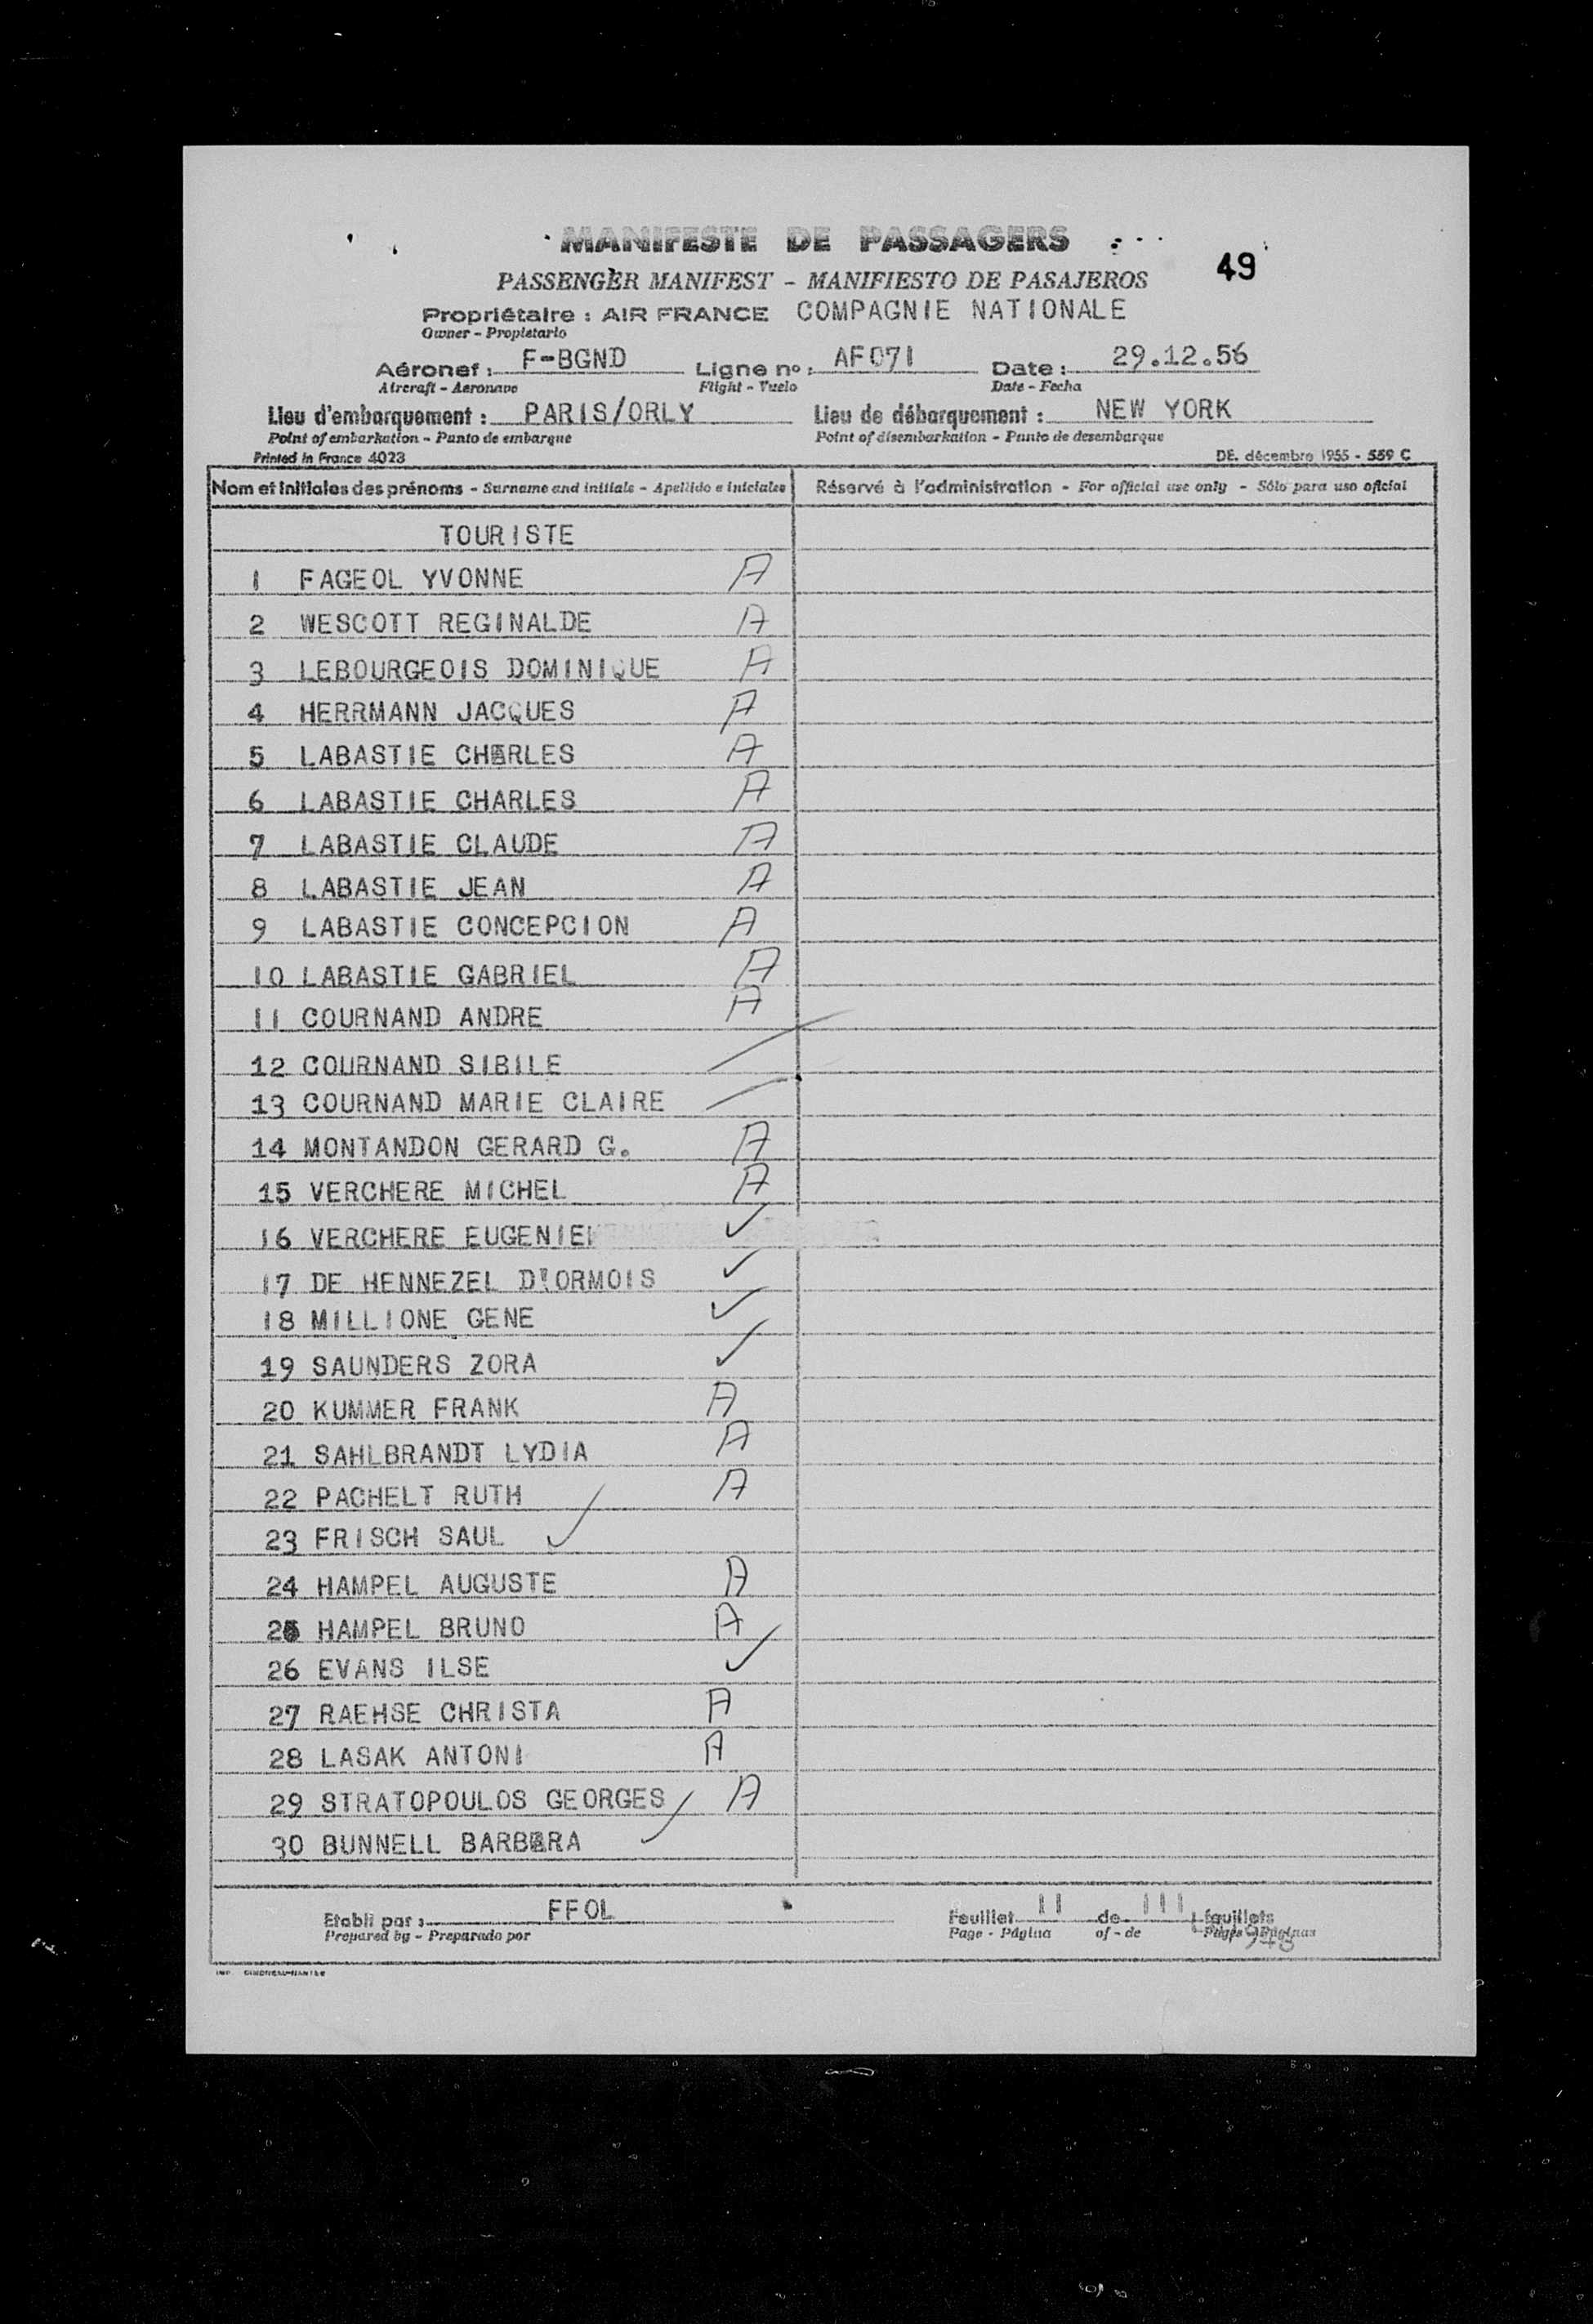 MANIFESTE DE PASSAGERS
49
PASSENGER MANIFEST - MANIFIESTO DE PASAJEROS
Propriétaire : AIR FRANCE COMPAGNIE NATIONALE
Owner - Propietario
Aéronef : F-BGND Ligne nº : AF071 Date : 29.12.56
Aircraft - Aeronave Flight - Vuelo Date - Fecha
Lieu d'embarquement : PARIS/ORLY Lieu de débarquement : NEW YORK
Point of embarkation - Punto de embarque Point of disembarkation - Punto de desembarque
Printed in France 4023 DE. décembre 1955 - 559 C
Nom et initiales des prénoms - Surname and initials - Apellido e iniciales Réservé à l'administration - For official use only - Sólo para uso oficial
TOURISTE
1 FAGEOL YVONNE A
2 WESCOTT REGINALDE A
3 LEBOURGEOIS DOMINIQUE A
4 HERRMANN JACQUES A
5 LABASTIE CHARLES A
6 LABASTIE CHARLES A
7 LABASTIE CLAUDE A
8 LABASTIE JEAN A
9 LABASTIE CONCEPCION A
10 LABASTIE GABRIEL A
11 COURNAND ANDRE A
12 COURNAND SIBILE
13 COURNAND MARIE CLAIRE
14 MONTANDON GERARD G. A
15 VERCHERE MICHEL A
16 VERCHERE EUGENIE ✓
17 DE HENNEZEL D'ORMOIS ✓
18 MILLIONE GENE ✓
19 SAUNDERS ZORA ✓
20 KUMMER FRANK A
21 SAHLBRANDT LYDIA A
22 PACHELT RUTH A
23 FRISCH SAUL ✓
24 HAMPEL AUGUSTE A
25 HAMPEL BRUNO A
26 EVANS ILSE ✓
27 RAEHSE CHRISTA A
28 LASAK ANTONI A
29 STRATOPOULOS GEORGES A
30 BUNNELL BARBARA ✓
Etabli par : FFOL Feuillet 11 de 111 feuillets
Prepared by - Preparado por Page - Página of - de Pages - Páginas